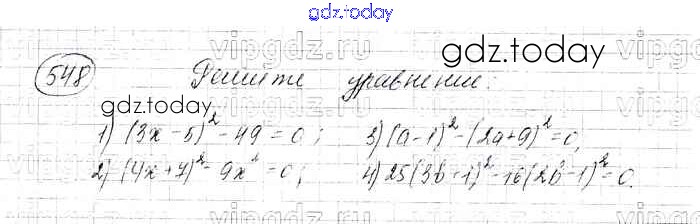 gdz.today
vipgdz.ru
gdz.today
548 Решите уравнение:
gdz.today
1) (3x - 5)² - 49 = 0; 3) (a - 1)² - (2a + 9)² = 0,
2) (4x + 7)² - 9x² = 0; 4) 25(3b + 1)² - 16(2b - 1)² = 0.
vipgdz.ru